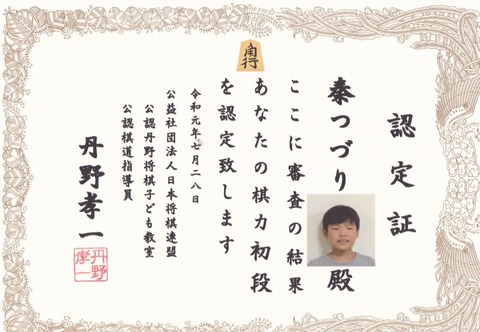 角行
認定証
秦つづり殿
ここに審査の結果
あなたの棋力初段
を認定致します
令和元年七月二八日
公益社団法人日本将棋連盟
公認丹野将棋子ども教室
公認棋道指導員
丹野孝一
丹野
孝一